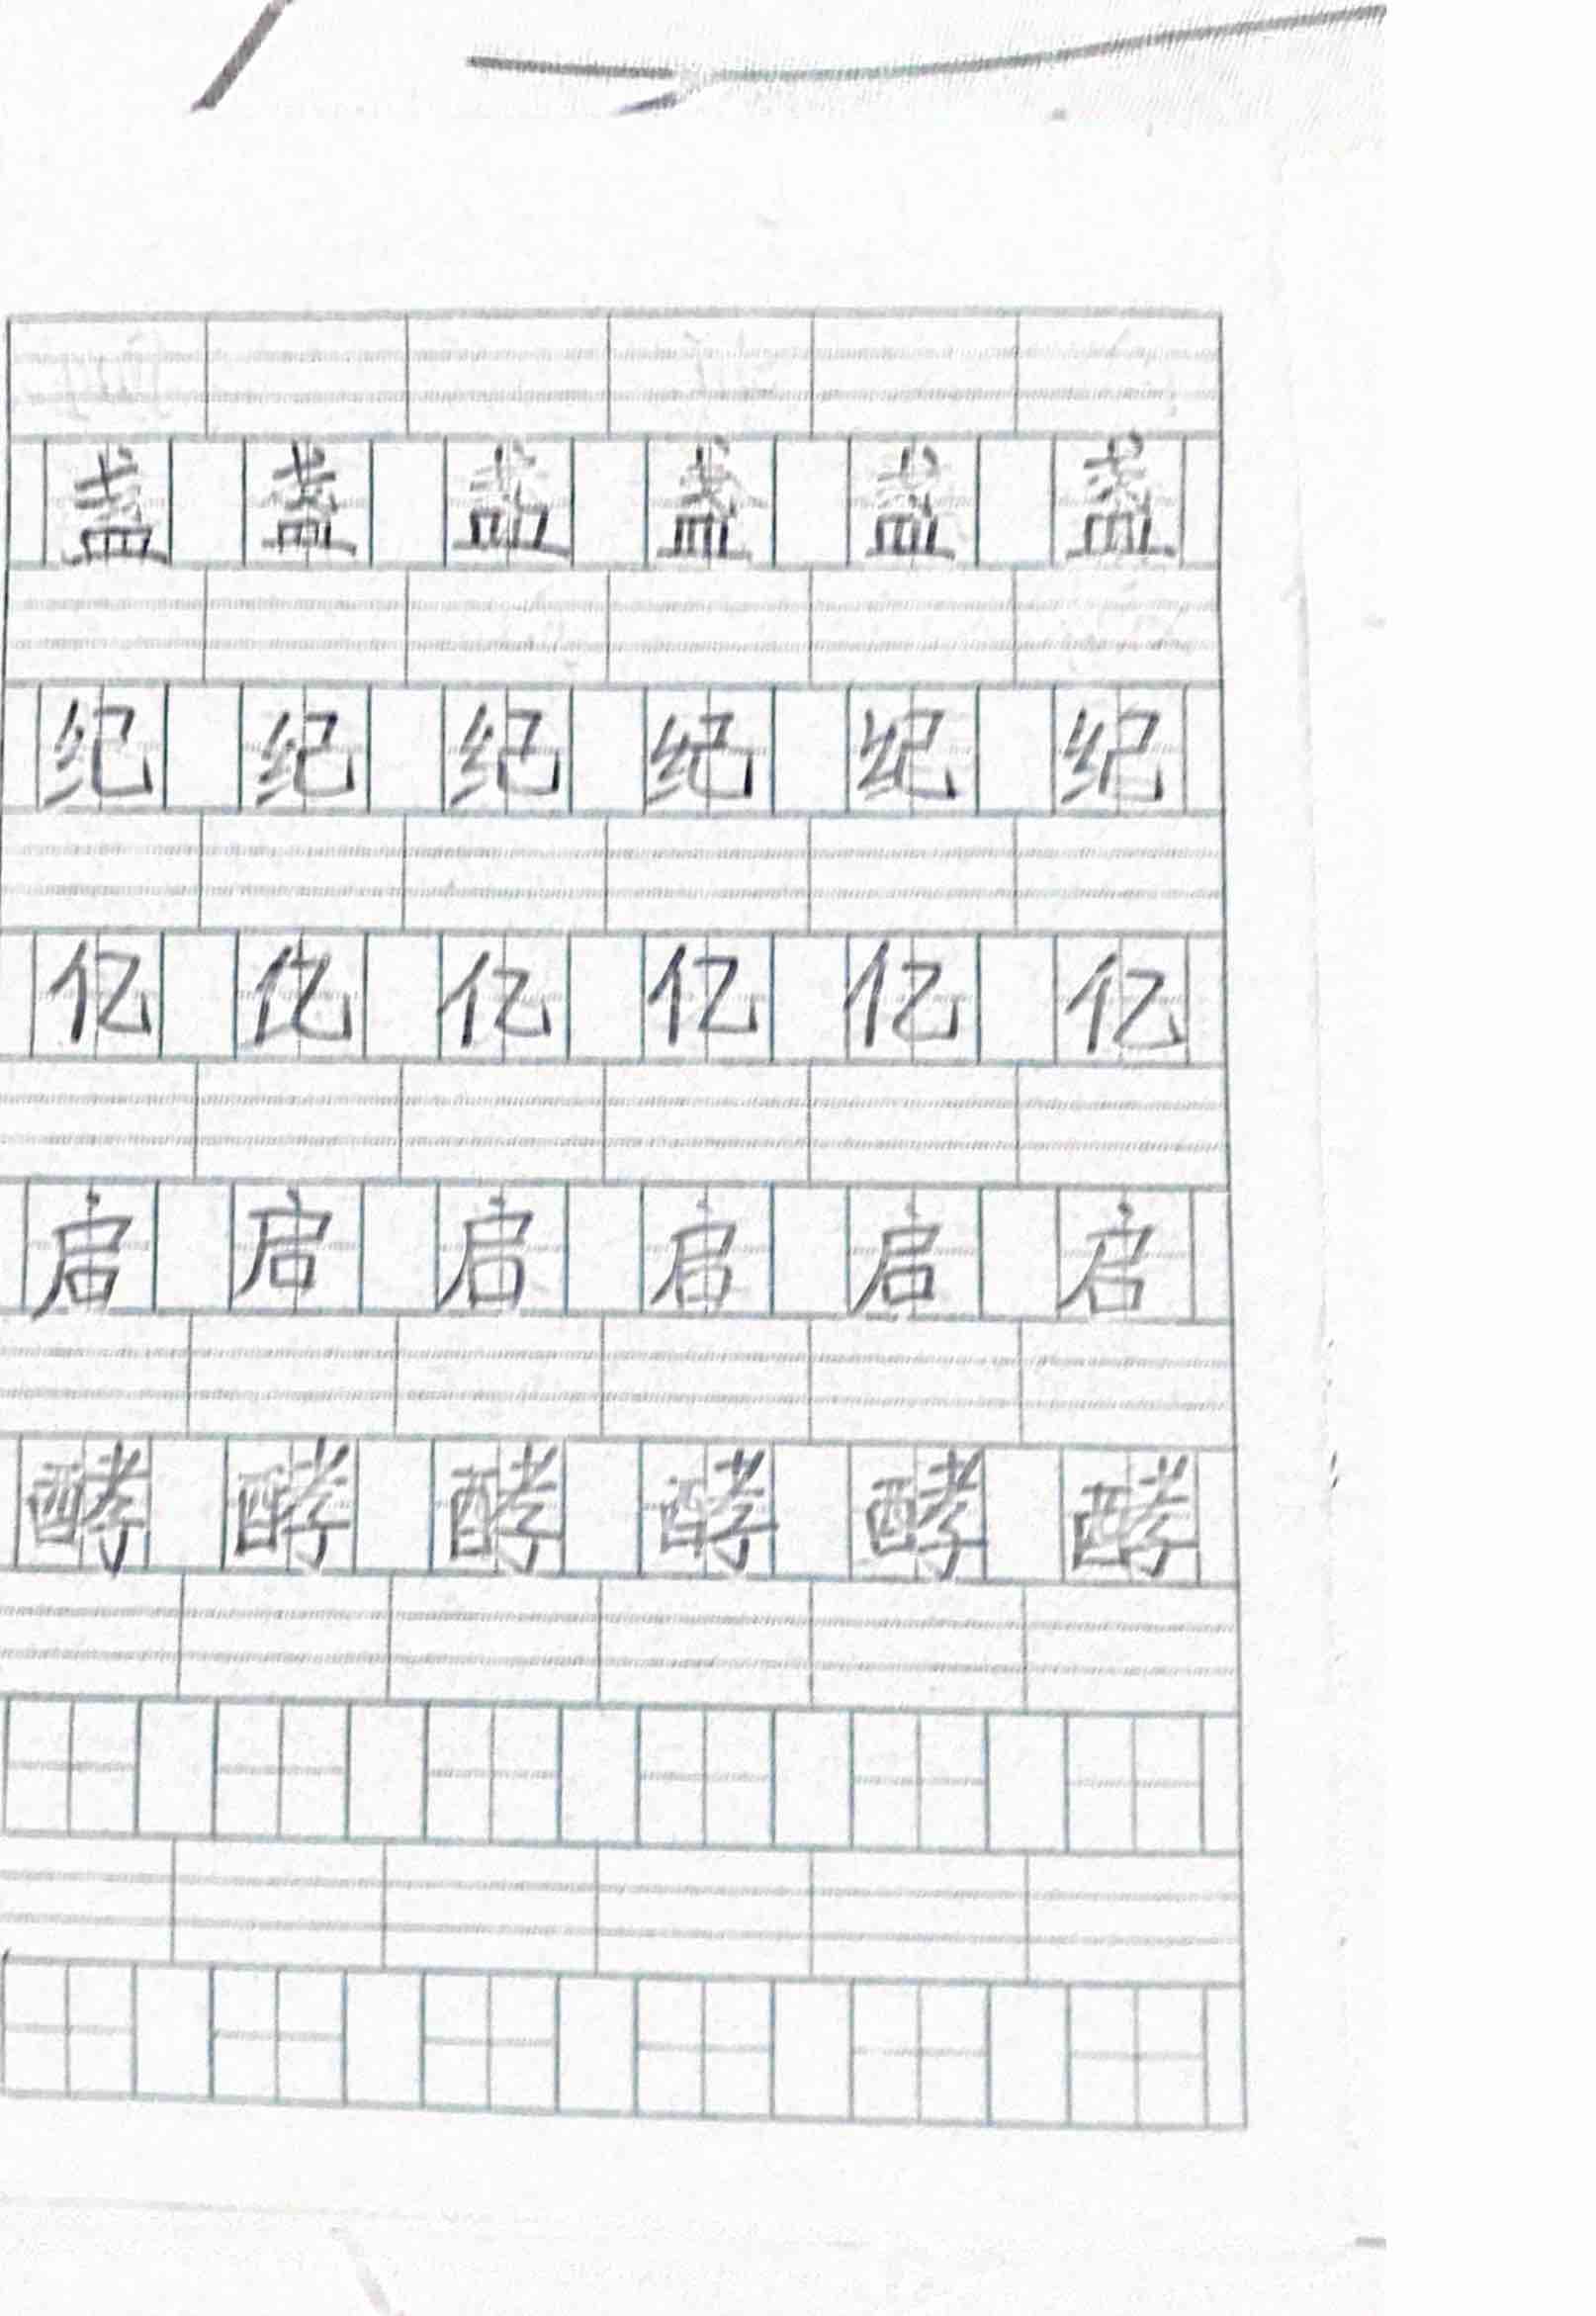 盏 盏 盏 盏 盏 盏
纪 纪 纪 纪 纪 纪
亿 亿 亿 亿 亿 亿
启 启 启 启 启 启
酵 酵 酵 酵 酵 酵